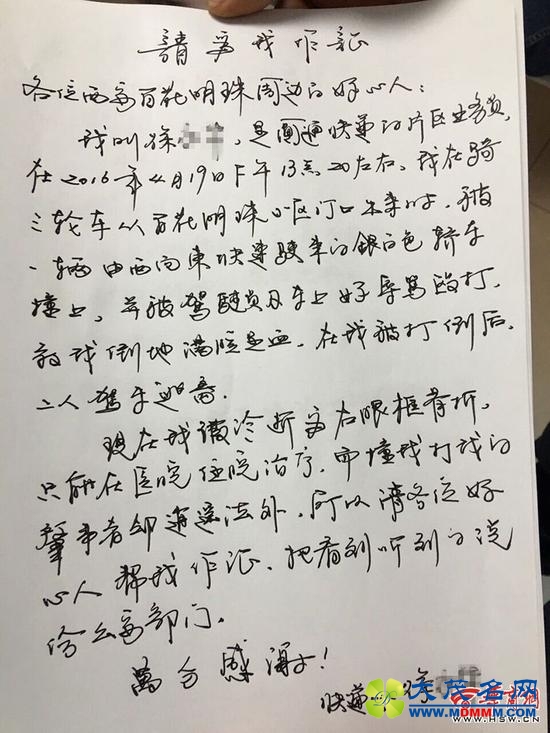 請为我作証
各位西安百花明珠周边的好心人：
我叫徐，是圆通快递的片区业务员，
在2016年4月19日下午13点20左右，我在骑
三轮车从百花明珠小区门口出来时，被
一辆由西向东快速驶来的银白色轿车
撞上，并被驾驶员及车上好辱骂殴打，
致我倒地满脸是血，在我被打倒后，
二人驾车逃离。
现在我被诊断为右眼眶骨折，
只能在医院住院治疗，而撞我打我的
肇事者却逍遥法外，所以请各位好
心人帮我作证，把看到听到的说
给公安部门。
萬分感谢！
快递 徐
大茂名网
WWW.MDMMM.COM
www.HSW.cn